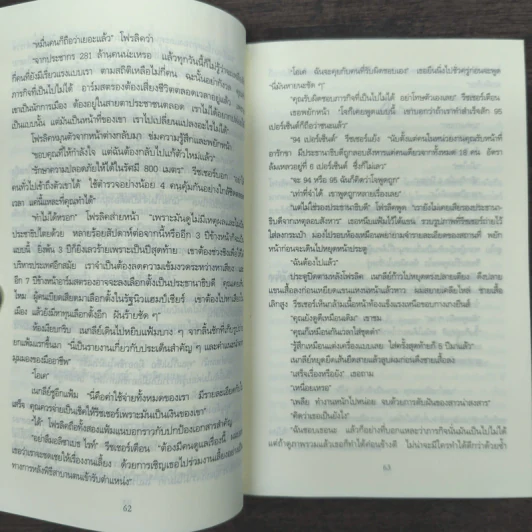 "หมื่นคนก็ถือว่าเยอะแล้ว" โฟรลิคว่า
"จากประชากร 281 ล้านคนน่ะเหรอ แล้วทุกวันนี้ก็ไม่รู้ว่า
ที่คนที่ยังมีเรี่ยวแรงแบบเรา ตามสถิติเหลือไม่กี่คน ฉะนั้นอย่างกังวล
ภารกิจที่เป็นไปไม่ได้ อาร์มสตรองต้องเสี่ยงชีวิตตลอดเวลาอยู่แล้ว
เขาเป็นนักการเมือง ต้องอยู่ในสายตาประชาชนตลอด เราไม่ได้
เป็นแบบนั้น แต่มันเป็นหน้าที่ของเขา เราไปเปลี่ยนแปลงอะไรไม่ได้"
โฟรลิคหมุนตัวจากหน้าต่างกลับมา ข่มความรู้สึกและพยักหน้า
"ขอบคุณที่ให้กำลังใจ แต่ฉันต้องกลับไปแก้ตัวใหม่แล้ว"
"รักษาความปลอดภัยให้ได้ในรัศมี 800 เมตร" รีชเชอร์บอก
ทั่วไปเข้าถึงตัวเขาได้ ใช้ตำรวจอย่างน้อย 4 คนคุ้มกันอย่างใกล้ชิดตลอด
เวลา แค่นี้แหละที่คุณทำได้"
"ทำไม่ได้หรอก" โฟรลิคส่ายหน้า "เพราะมันดูไม่มีเหตุผลและไม่เป็น
ประชาธิปไตยด้วย หลายร้อยสัปดาห์ต่อจากนี้หรืออีก 3 ปีข้างหน้าก็จะเป็น
แบบนี้ ยิ่งพ้น 3 ปีก็ยิ่งเลวร้ายเพราะเป็นปีสุดท้าย เขาต้องช่วงชิงเพื่อให้ได้
บริหารประเทศอีกสมัย เราจำเป็นต้องลดความเข้มงวดระหว่างหาเสียง
อีก 7 ปีข้างหน้าอาร์มสตรองอาจจะลงเลือกตั้งเป็นประธานาธิบดี คุณเคย
ไหม ผู้คนเบียดเสียดมาเลือกตั้งในรัฐนิวแฮมป์เชียร์ เขาต้องไปหาเสียง
เมือง แล้วยังมีหาทุนเลือกตั้งอีก ฝันร้ายชัด ๆ"
ห้องเงียบกริบ เนกลีย์เดินไปหยิบแฟ้มบาง ๆ จากลิ้นชักที่เก็บ
แฟ้มแรกขึ้นมา "นี่เป็นรายงานเกี่ยวกับประเด็นสำคัญ ๆ และคำแนะนำ
มุมมองของมืออาชีพ"
"โอเค"
เนกลีย์ชูอีกแฟ้ม "นี่คือค่าใช้จ่ายทั้งหมดของเรา มีรายละเอียด
เสร็จ คุณควรจ่ายเป็นเช็คให้รีชเชอร์เพราะมันเป็นเงินของเขา"
"ได้" โฟรลิคถือทั้งสองแฟ้มแนบอกราวกับปกป้องเอกสารสำคัญ
"อย่าลืมเอลิซาเบธ ไรท์" รีชเชอร์เตือน "ต้องมีคนดูแลเรื่องนี้
เธอว่าเราจะชดเชยให้เรื่องงานเลี้ยง ด้วยการเชิญเธอไปร่วมงานเลี้ยงอย่าง
ทางการหลังพิธีสาบานตนเข้ารับตำแหน่ง"
62
"โอเค ฉันจะคุยกับคนที่รับผิดชอบเอง" เธอยืนนิ่งไปชั่วครู่ก่อนจะพูด
"นี่มันหายนะชัด ๆ"
"คุณรับผิดชอบภารกิจที่เป็นไปไม่ได้ อย่าโทษตัวเองเลย" รีชเชอร์เตือน
เธอพยักหน้า "วิจก็เคยพูดแบบนี้ เขาบอกว่าถ้าเราทำสำเร็จสัก 95
เปอร์เซ็นต์ก็ถือว่าชนะแล้ว"
"94 เปอร์เซ็นต์" รีชเชอร์แย้ง "นับตั้งแต่คนในหน่วยงานคุณรับหน้าที่
อารักขา มีประธานาธิบดีถูกลอบสังหารแค่คนเดียวจากทั้งหมด 18 คน อัตรา
ล้มเหลวอยู่ที่ 6 เปอร์เซ็นต์ ซึ่งก็ไม่เลว"
"จะ 94 หรือ 95 ฉันก็คิดว่าใจพูดถูก"
"เท่าที่จำได้ เขาพูดถูกหลายเรื่องเลย"
"แต่ไม่ใช่ประธานาธิบดี" โฟรลิคพูด "เรายังไม่เคยเสียรองประธานา-
ธิบดีจากเหตุลอบสังหาร" เธอหนีบแฟ้มไว้ใต้แขน รวบรูปถ่ายที่รีชเชอร์ถ่ายไว้
ใส่ลงกระเป๋า มองไปรอบห้องเหมือนพยายามจำรายละเอียดของสถานที่ พยัก
หน้าก่อนจะเดินไปหยุดหน้าประตู
"ฉันต้องไปแล้ว"
ประตูปิดตามหลังโฟรลิค เนกลีย์ก้าวไปหยุดตรงปลายเตียง ดึงปลาย
แขนเสื้อก่อนเหยียดแขนเหนือศีรษะพลางหาวแล้วหาว ผมสยายเคลียไหล่ ชายเสื้อ
เลิกสูง รีชเชอร์เห็นกล้ามเนื้อหน้าท้องแข็งแรงเหนือขอบกางเกงยีนส์
"คุณยังดูดีเหมือนเดิม" เขาชม
"คุณก็เหมือนกันเวลาใส่ชุดดำ"
"รู้สึกเหมือนแต่งเครื่องแบบเลย ใส่ครั้งสุดท้ายก็ 5 ปีมาแล้ว"
เนกลีย์หยุดยืดเส้นยืดสายแล้วลูบผมก่อนดึงชายเสื้อลง
"เสร็จเรื่องหรือยัง" เธอถาม
"เหนื่อยเหรอ"
"เพลีย ทำงานหนักไปหน่อย จบด้วยการดับฝันของสาวน่าสงสาร"
"คิดว่าเธอเป็นยังไง"
"ฉันชอบเธอนะ แล้วก็อย่างที่บอกแหละว่าภารกิจนั้นมันเป็นไปไม่ได้
แต่ถ้าดูภาพรวมแล้วเธอก็ทำได้ค่อนข้างดี ไม่น่าจะมีใครทำได้ดีกว่าด้วยซ้ำ
63